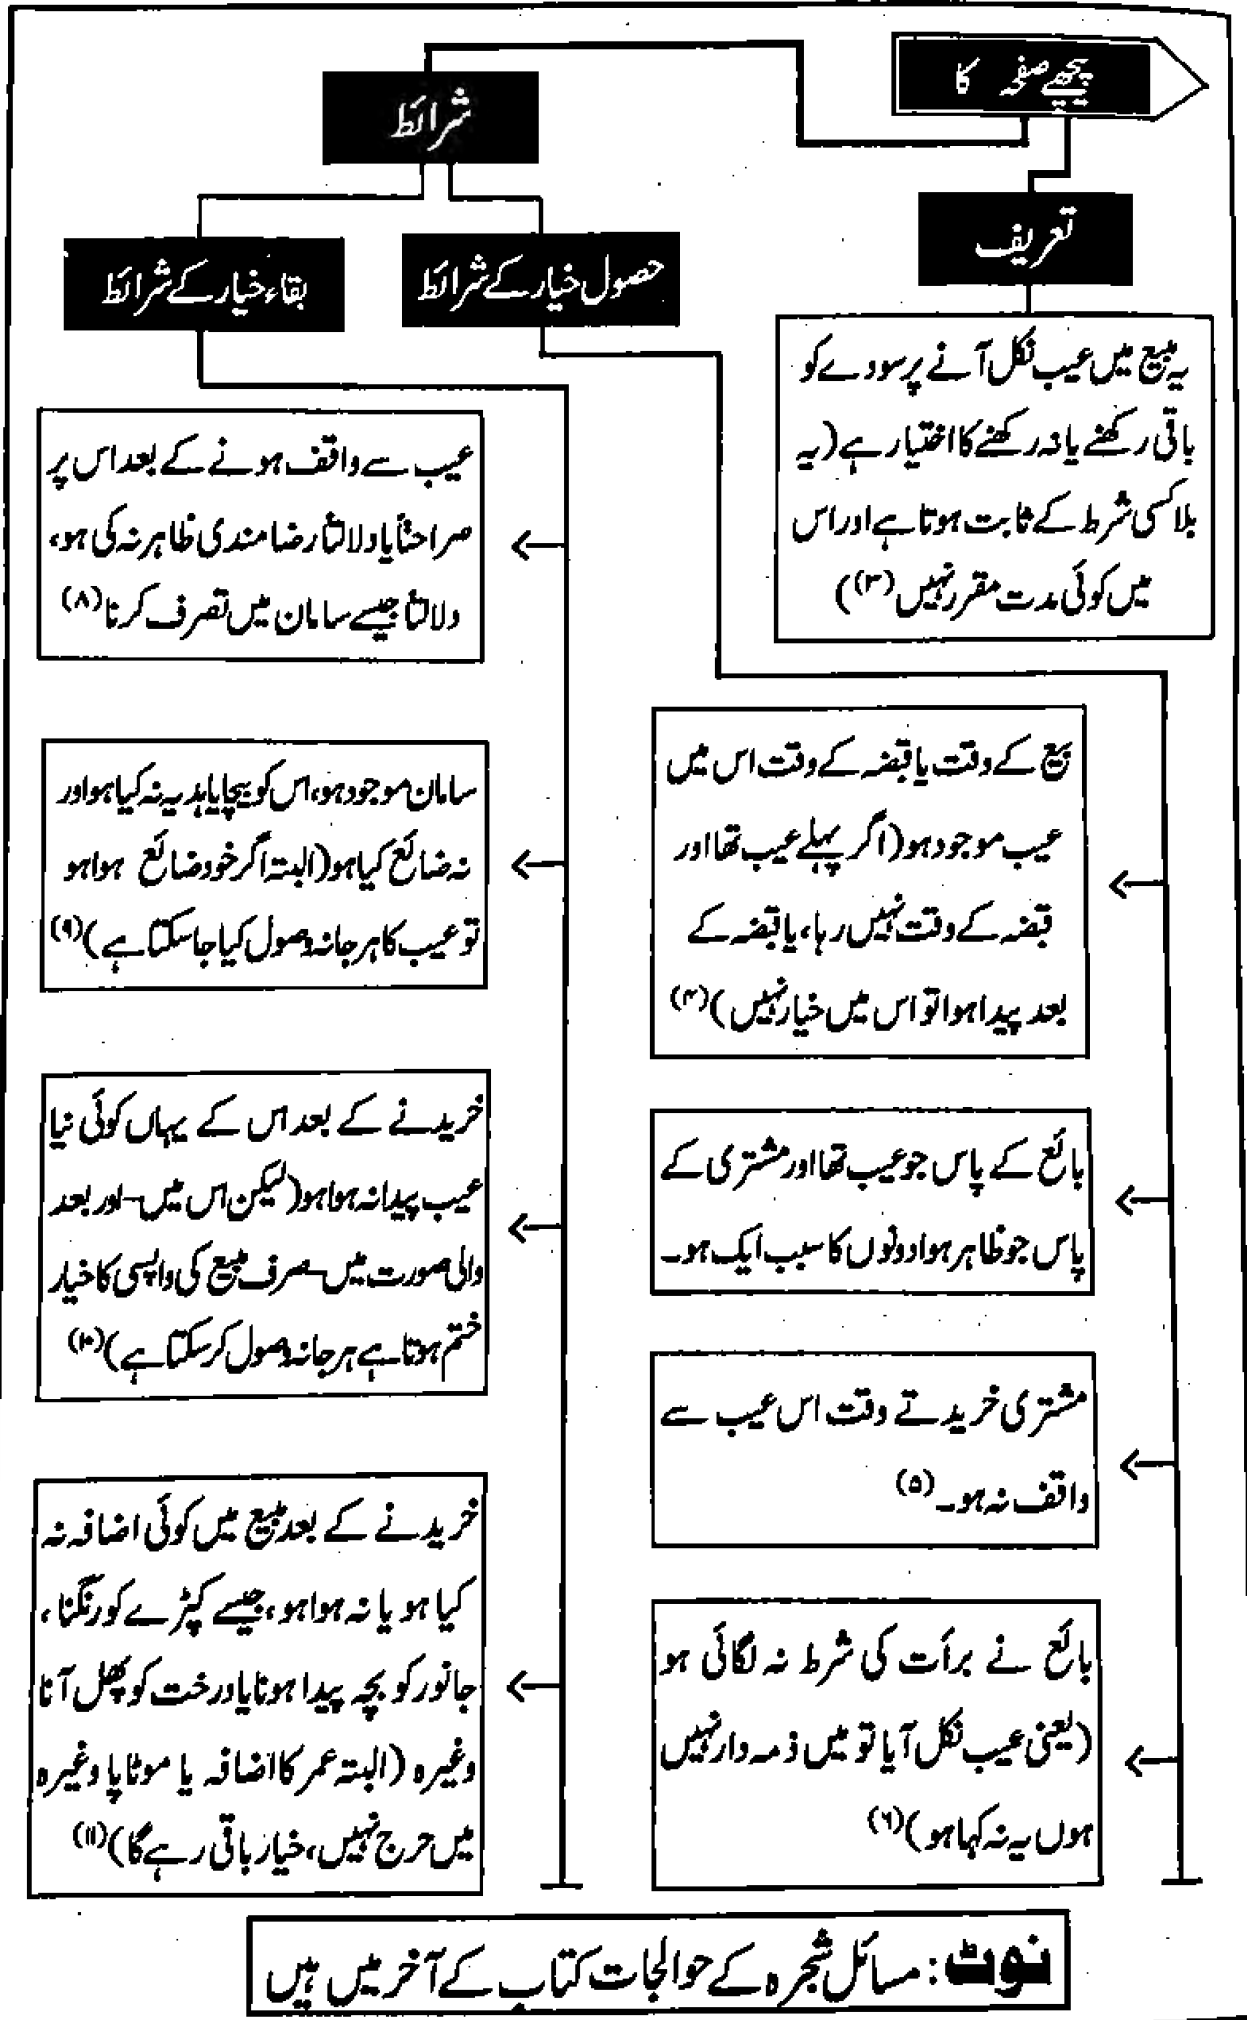 پچھلے صفحہ کا
تعریف
یہ مبیع میں عیب نکل آنے پر سودے کو
باقی رکھنے یا نہ رکھنے کا اختیار ہے (یہ
بلا کسی شرط کے ثابت ہوتا ہے اور اس
میں کوئی مدت مقرر نہیں (۳))
شرائط
حصول خیار کے شرائط
بیع کے وقت یا قبضہ کے وقت اس میں
عیب موجود ہو (اگر پہلے عیب تھا اور
قبضہ کے وقت نہیں رہا، یا قبضہ کے
بعد پیدا ہوا تو اس میں خیار نہیں) (۴)
بائع کے پاس جو عیب تھا اور مشتری کے
پاس جو ظاہر ہوا دونوں کا سبب ایک ہو۔
مشتری خریدتے وقت اس عیب سے
واقف نہ ہو۔ (۵)
بائع نے برأت کی شرط نہ لگائی ہو
(یعنی عیب نکل آیا تو میں ذمہ دار نہیں
ہوں یہ نہ کہا ہو) (۶)
بقاء خیار کے شرائط
عیب سے واقف ہونے کے بعد اس پر
صراحتاً یا دلالتاً رضا مندی ظاہر نہ کی ہو،
دلالتاً جیسے سامان میں تصرف کرنا (۸)
سامان موجود ہو، اس کو بیچا یا ہدیہ نہ کیا ہو اور
نہ ضائع کیا ہو (البتہ اگر خود ضائع ہوا ہو
تو عیب کا ہرجانہ وصول کیا جا سکتا ہے) (۹)
خریدنے کے بعد اس کے یہاں کوئی نیا
عیب پیدا نہ ہوا ہو (لیکن اس میں - اور بعد
والی صورت میں - صرف مبیع کی واپسی کا خیار
ختم ہوتا ہے ہرجانہ وصول کر سکتا ہے) (۱۰)
خریدنے کے بعد مبیع میں کوئی اضافہ نہ
کیا ہو یا نہ ہوا ہو، جیسے کپڑے کو رنگنا،
جانور کو بچہ پیدا ہونا یا درخت کو پھل آنا
وغیرہ (البتہ عمر کا اضافہ یا موٹاپا وغیرہ
میں حرج نہیں، خیار باقی رہے گا) (۱۱)
نوٹ: مسائل شجرہ کے حوالجات کتاب کے آخر میں ہیں